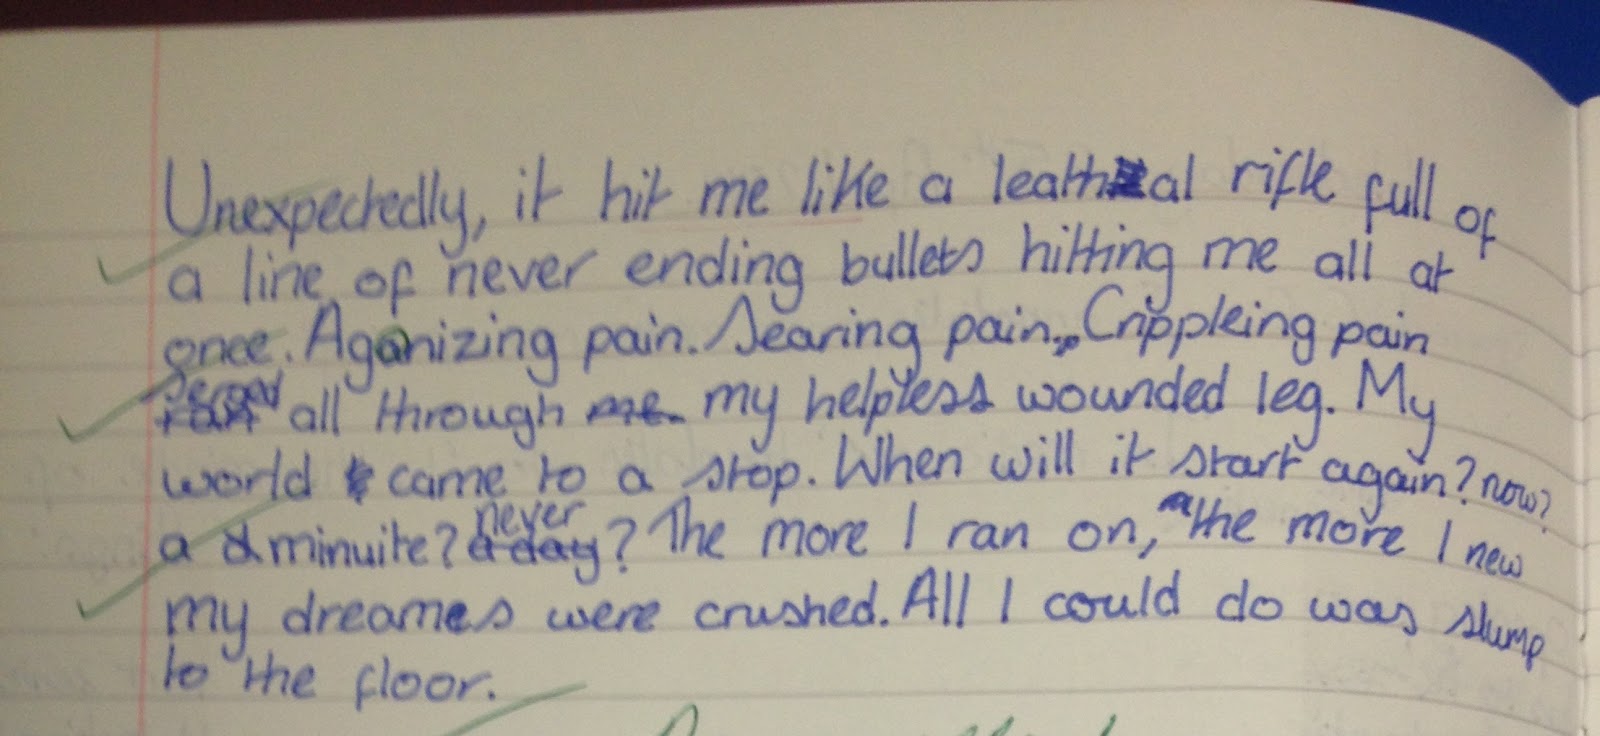 Unexpectedly, it hit me like a leathal rifle full of
a line of never ending bullets hitting me all at
once. Agonizing pain. Searing pain. Crippleing pain
all through me. my helpless wounded leg. My
world came to a stop. When will it start again? now?
a minuite? never a day? The more I ran on, the more I new
my dreames were crushed. All I could do was slump
to the floor.